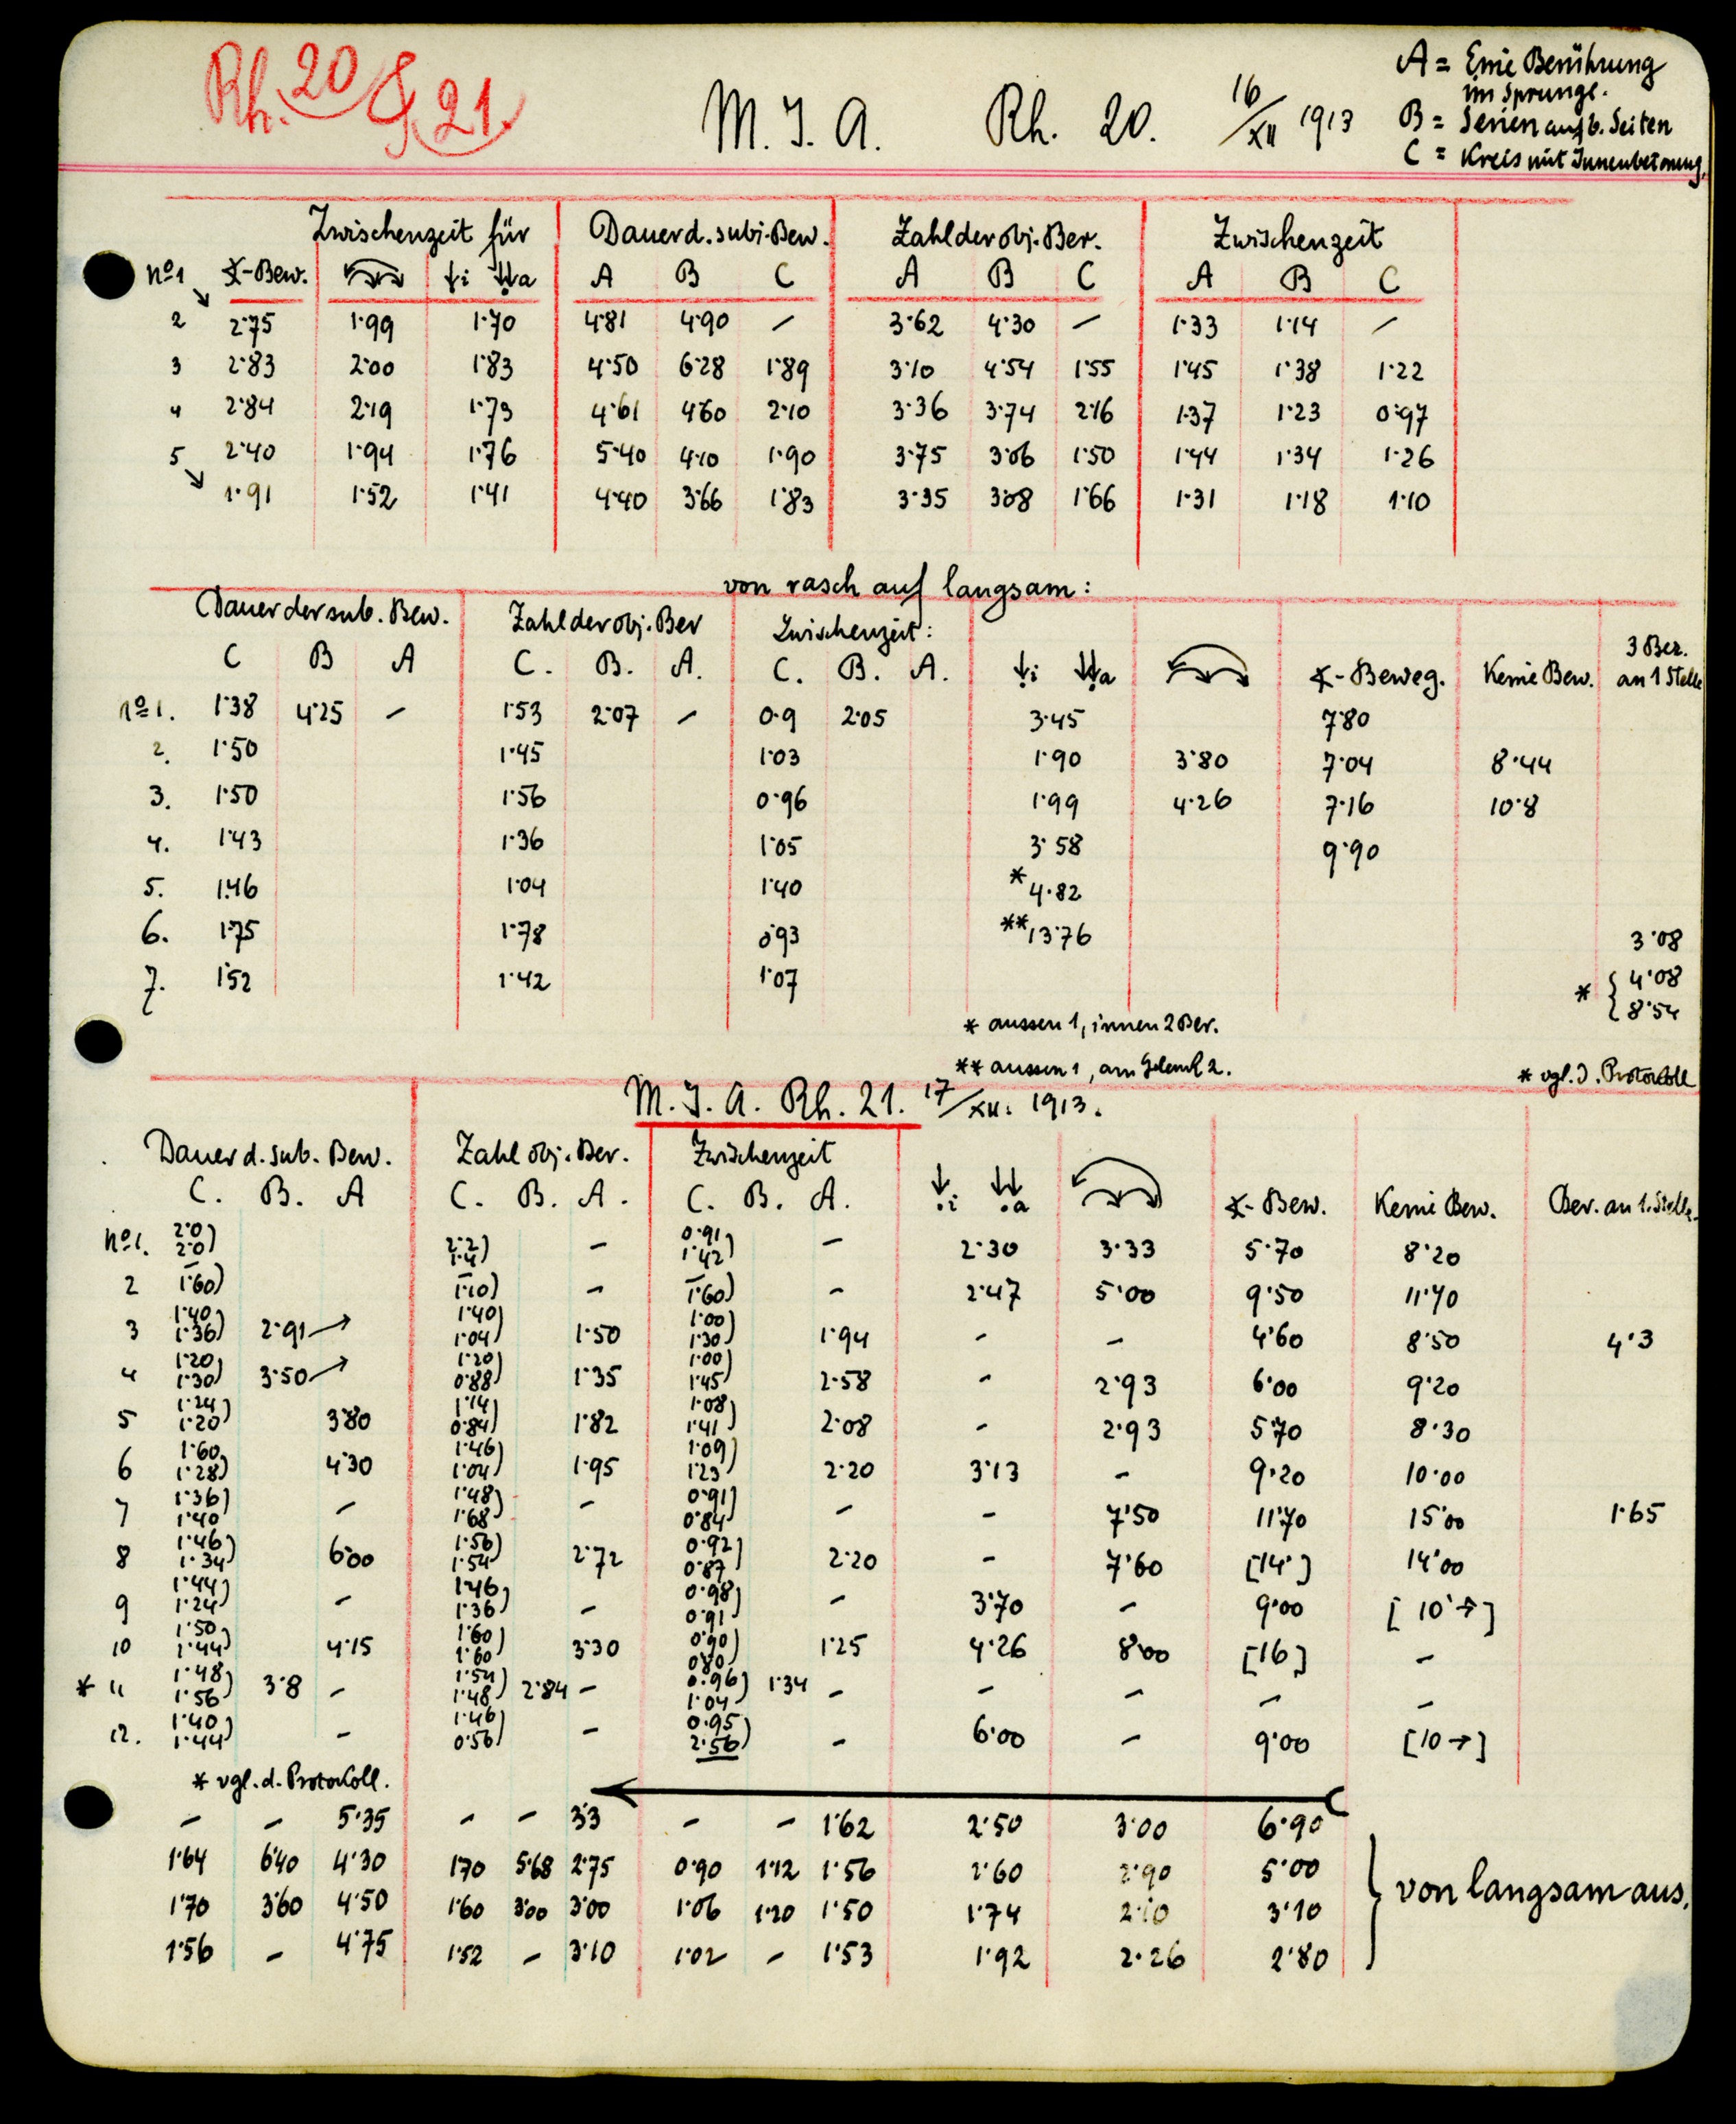 Rh. 20 & 21.
M. I. A. Rh. 20. 16/XII 1913
A = Eine Berührung
im Sprunge.
B = Serien auf b. Seiten
C = Kreis mit Innenbetonung.
Zwischenzeit für Dauer d. subj. Bew. Zahl der obj. Ber. Zwischenzeit
No 1 ∢-Bew. ↓i ↓↓a A B C A B C A B C
2 2·75 1·99 1·70 4·81 4·90 – 3·62 4·30 – 1·33 1·14 –
3 2·83 2·00 1·83 4·50 6·28 1·89 3·10 4·54 1·55 1·45 1·38 1·22
4 2·84 2·19 1·73 4·61 4·60 2·10 3·36 3·74 2·16 1·37 1·23 0·97
5 2·40 1·94 1·76 5·40 4·10 1·90 3·75 3·06 1·50 1·44 1·34 1·26
1·91 1·52 1·41 4·40 3·66 1·83 3·35 3·08 1·66 1·31 1·18 1·10
von rasch auf langsam:
Dauer der sub. Bew. Zahl der obj. Ber Zwischenzeit: 3 Ber.
C B A C. B. A. C. B. A. ↓i ↓↓a ∢-Beweg. Keine Bew. an 1 Stelle
No 1. 1·38 4·25 – 1·53 2·07 – 0·9 2·05 3·45 7·80
2. 1·50 1·45 1·03 1·90 3·80 7·04 8·44
3. 1·50 1·56 0·96 1·99 4·26 7·16 10·8
4. 1·43 1·36 1·05 3·58 9·90
5. 1·46 1·04 1·40 * 4·82
6. 1·75 1·78 0·93 ** 13·76 3·08
7. 1·52 1·42 1·07 * { 4·08
8·54
* aussen 1, innen 2 Ber.
** aussen 1, am Gelenk 2.
* vgl. d. Protokoll
M. I. A. Rh. 21. 17/XII. 1913.
Dauer d. sub. Bew. Zahl obj. Ber. Zwischenzeit
C. B. A C. B. A. C. B. A. ↓i ↓↓a ∢-Bew. Keine Bew. Ber. an 1. Stelle
No 1. 2·0) 2·2) – 0·91) – 2·30 3·33 5·70 8·20
2·0) 1·4) 1·42)
2 – – – – – 2·47 5·00 9·50 11·70
1·60) 1·10) 1·60)
3 1·40) 2·91→ 1·40) 1·50 1·00) 1·94 – – 4·60 8·50 4·3
1·36) 1·04) 1·30)
4 1·20) 3·50→ 1·20) 1·35 1·00) 2·58 – 2·93 6·00 9·20
1·30) 0·88) 1·45)
5 1·24) 3·80 1·14) 1·82 1·08) 2·08 – 2·93 5·70 8·30
1·20) 0·84) 1·41)
6 1·60) 4·30 1·46) 1·95 1·09) 2·20 3·13 – 9·20 10·00
1·28) 1·04) 1·23)
7 1·36) – 1·48) – 0·91) – – 7·50 11·70 15·00 1·65
1·40) 1·68) 0·84)
8 1·46) 6·00 1·56) 2·72 0·92) 2·20 – 7·60 [14·] 14·00
1·34) 1·54) 0·87)
9 1·44) – 1·46) – 0·98) – 3·70 – 9·00 [10·→]
1·24) 1·36) 0·91)
10 1·50) 4·15 1·60) 3·30 0·90) 1·25 4·26 8·00 [16] –
1·44) 1·60) 0·80)
* 11 1·48) 3·8 – 1·54) 2·84 – 0·96) 1·34 – – – – –
1·56) 1·48) 1·04)
12. 1·40) – 1·46) – 0·95) – 6·00 – 9·00 [10→]
1·44) 0·56) 2·56)
* vgl. d. Protokoll.
– – 5·35 – – 3·3 – – 1·62 2·50 3·00 6·90
1·64 6·40 4·30 1·70 5·68 2·75 0·90 1·12 1·56 2·60 2·90 5·00
1·70 3·60 4·50 1·60 3·00 3·00 1·06 1·20 1·50 1·74 2·10 3·10
1·56 – 4·75 1·52 – 3·10 1·02 – 1·53 1·92 2·26 2·80
} von langsam aus.